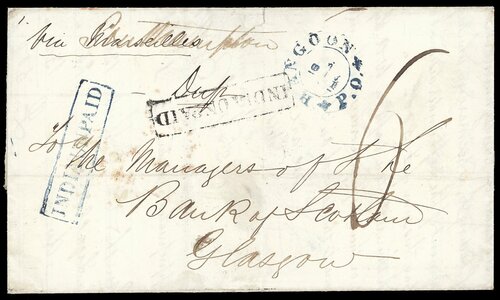 via Marseilles
Dup
RANGOON P.O.
INDIA UNPAID
INDIA UNPAID
6
To the Managers of the
Bank of Scotland
Glasgow